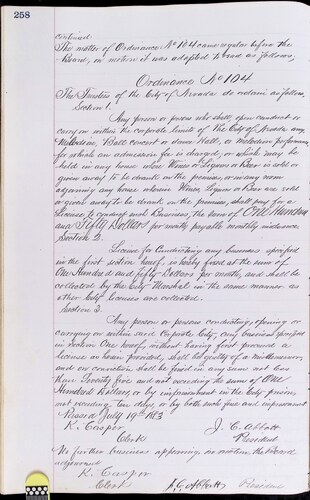 258
continued
The matter of Ordinance No 104 came regular before the
Board, on motion it was adopted to read as follows,
Ordinance No 104
The Trustees of the City of Nevada do ordain as follows,
Section 1.
Any person or persons who shall, open conduct or
carry on within the corporate limits of The City of Nevada any
Melodeon, Ball concert or dance Hall, or Melodeon performance
for which an admission fee is charged, or which may be
held in any house where Wines or Liquors or Beer is sold or
given away to be drank on the premises, or in any room
adjoining any house wherein Wines, Liquors or Beer are sold
or given away to be drank on the premises, shall pay for a
License to conduct said Business, the sum of One Hundred
and Fifty Dollars per month payable monthly in advance
Section 2.
License for Conducting any business specified
in the first section hereof, is hereby fixed at the sum of
One Hundred and fifty Dollars per month, and shall be
collected by the City Marshal in the same manner as
other City Licenses are collected.
Section 3.
Any person or persons conducting, opening or
carrying on within said City, any business specified
in Section One hereof, without having first procured a
license as herein provided, shall be guilty of a misdemeanor,
and on conviction shall be fined in any sum not less
than Twenty five and not exceeding the sum of One
Hundred Dollars, or by imprisonment in the City prison
not exceeding ten days, or by both such fine and imprisonment
Passed July 19th
K. Casper J. C. Abbott
Clerk President
No further business appearing on motion the Board
adjourned
K. Casper
Clerk President